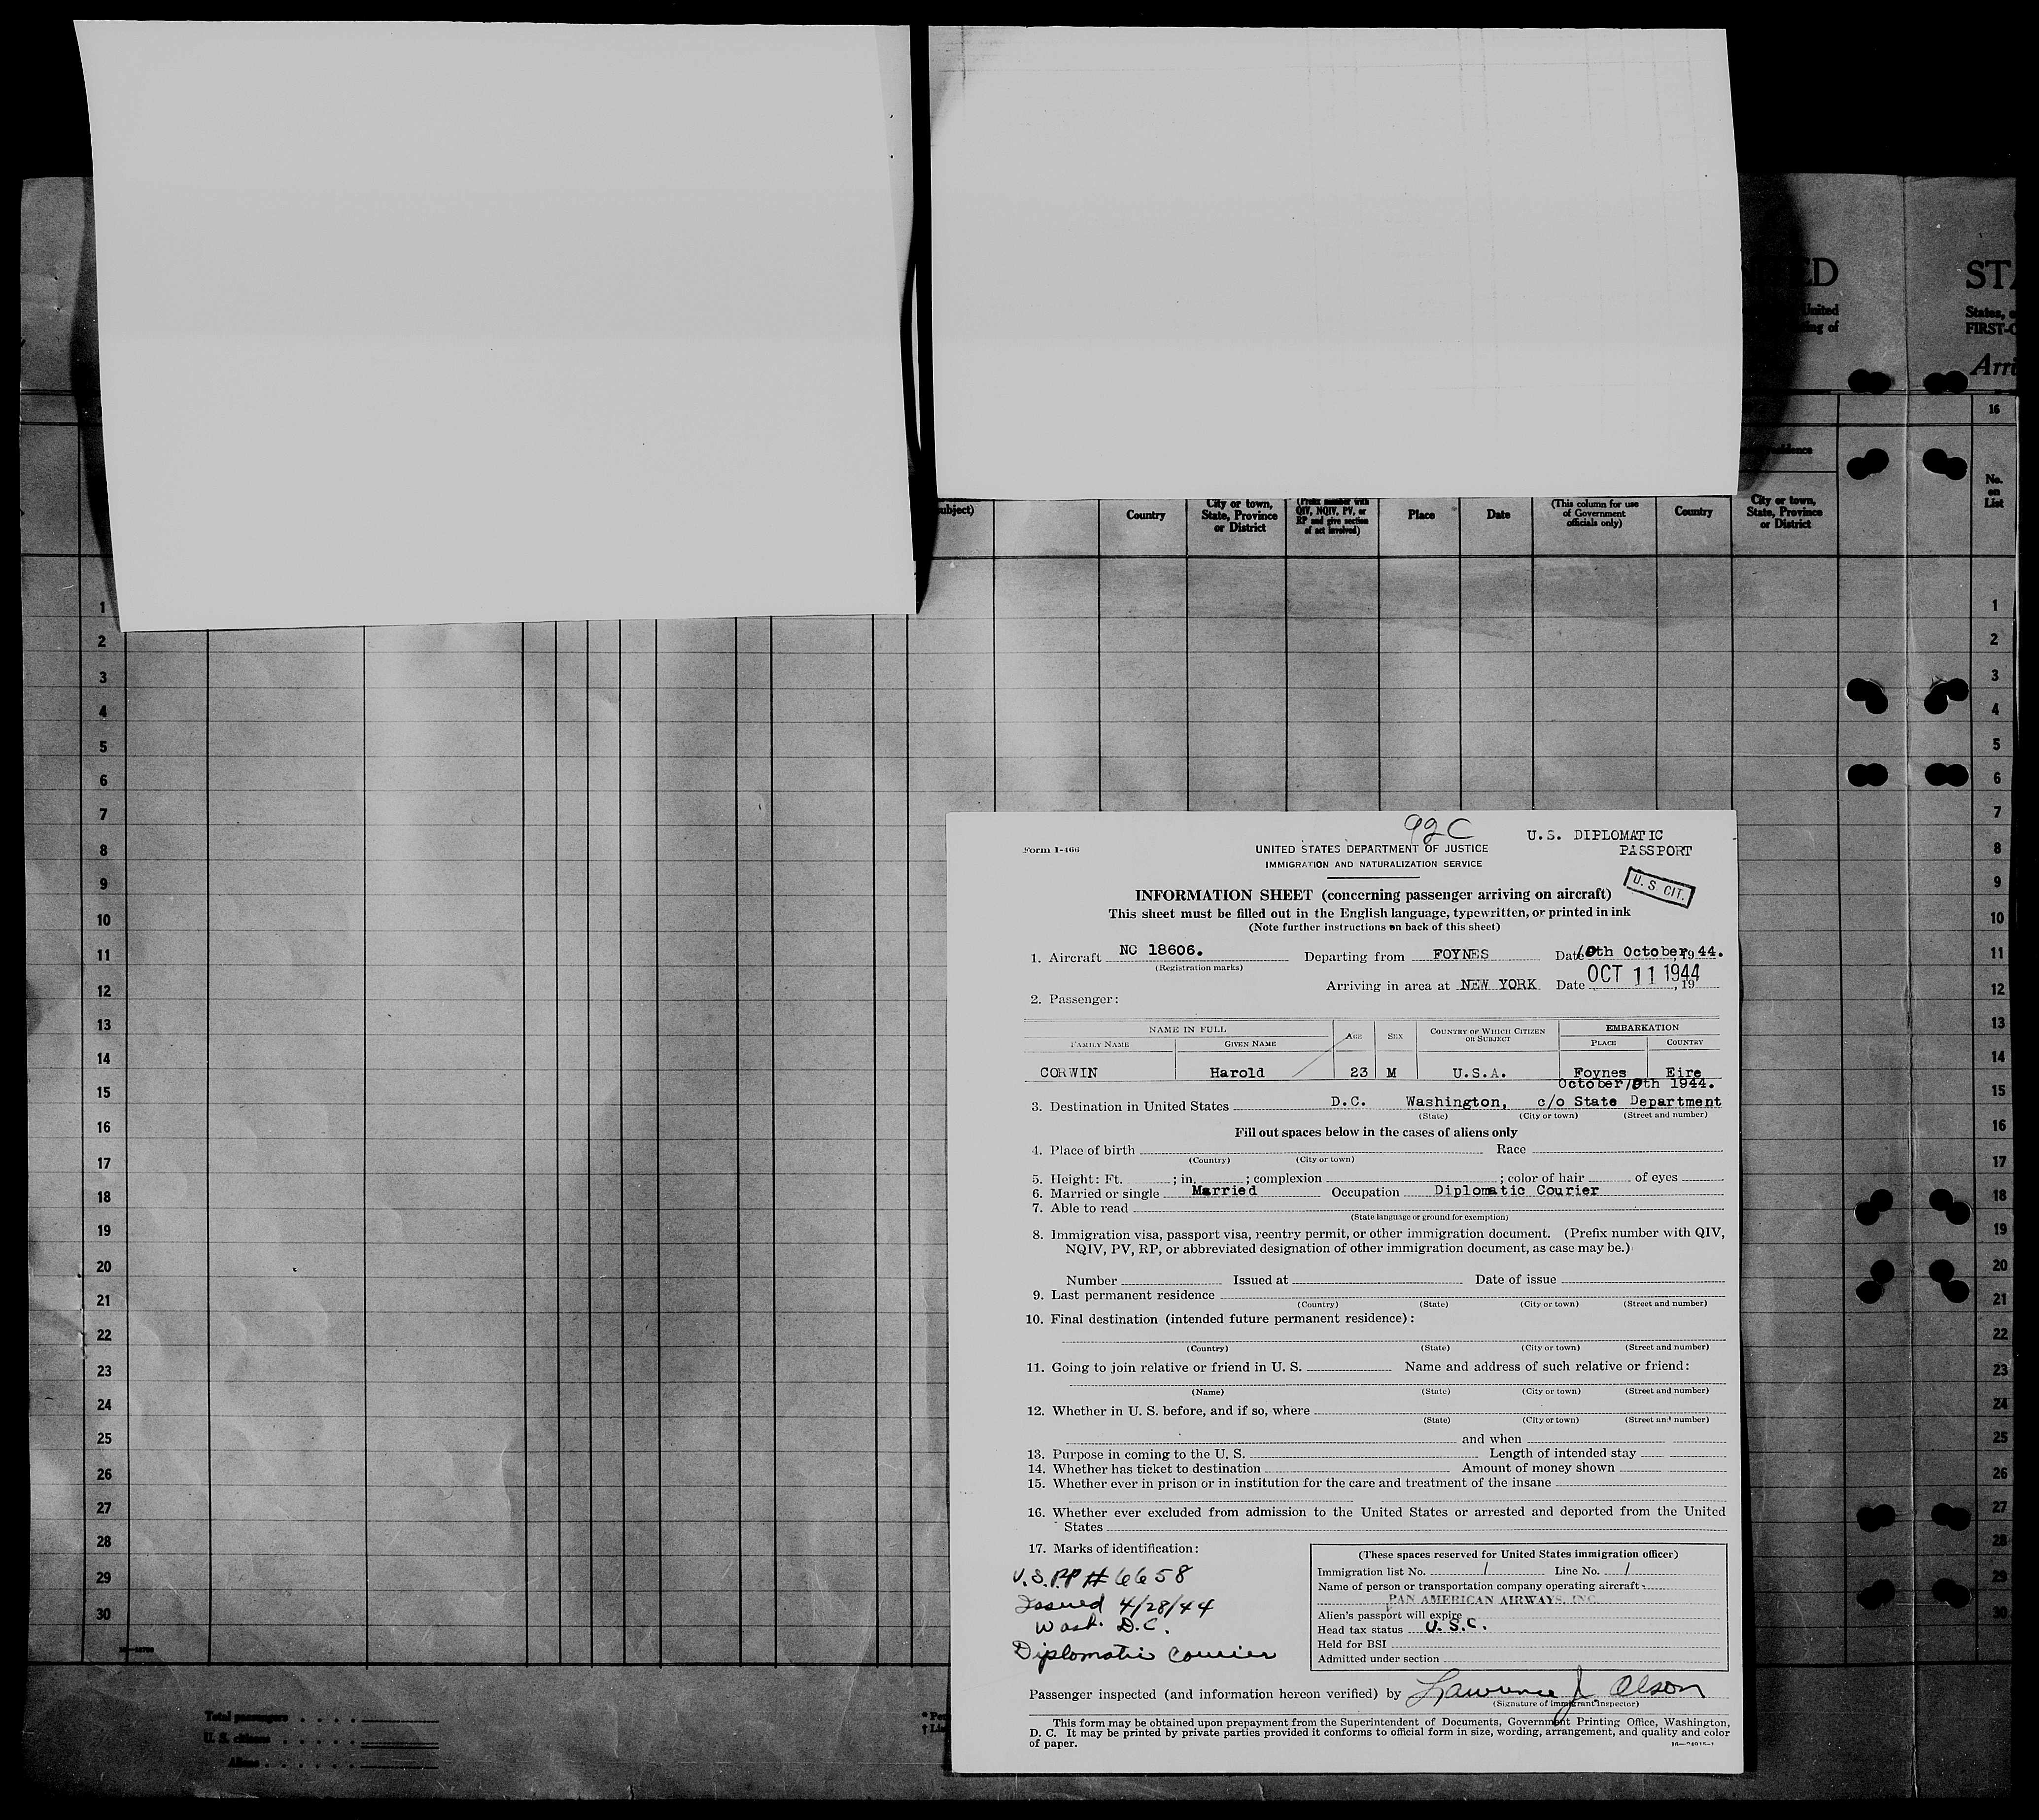 ED
STA
United
ing of
States, o
FIRST-C
Arri
16
idence
ubject)
Country
City or town, State, Province or District
(Prefix number with QIV, NQIV, PV, or RP and give section of act involved)
Place
Date
(This column for use of Government officials only)
Country
City or town, State, Province or District
No. on List
1 1
2 2
3 3
4 4
5 5
6 6
7 7
8 8
9 9
10 10
11 11
12 12
13 13
14 14
15 15
16 16
17 17
18 18
19 19
20 20
21 21
22 22
23 23
24 24
25 25
26 26
27 27
28 28
29 29
30 30
Total passengers . . . .
U. S. citizens . . . . .
Aliens . . . . . .
* Per
† Lis
92C
U.S. DIPLOMATIC
PASSPORT
Form I-466
UNITED STATES DEPARTMENT OF JUSTICE
IMMIGRATION AND NATURALIZATION SERVICE
U. S CIT.
INFORMATION SHEET (concerning passenger arriving on aircraft)
This sheet must be filled out in the English language, typewritten, or printed in ink
(Note further instructions on back of this sheet)
1. Aircraft NC 18606. Departing from FOYNES Date 10th October, 1944.
(Registration marks)
Arriving in area at NEW YORK Date OCT 11 1944, 19
2. Passenger:
NAME IN FULL AGE SEX COUNTRY OF WHICH CITIZEN OR SUBJECT EMBARKATION
FAMILY NAME GIVEN NAME PLACE COUNTRY
CORWIN Harold 23 M U.S.A. Foynes Eire
October 10th 1944.
3. Destination in United States D.C. Washington, c/o State Department
(State) (City or town) (Street and number)
Fill out spaces below in the cases of aliens only
4. Place of birth Race
(Country) (City or town)
5. Height: Ft. ; in. ; complexion ; color of hair of eyes
6. Married or single Married Occupation Diplomatic Courier
7. Able to read
(State language or ground for exemption)
8. Immigration visa, passport visa, reentry permit, or other immigration document. (Prefix number with QIV,
NQIV, PV, RP, or abbreviated designation of other immigration document, as case may be.)
Number Issued at Date of issue
9. Last permanent residence
(Country) (State) (City or town) (Street and number)
10. Final destination (intended future permanent residence):
(Country) (State) (City or town) (Street and number)
11. Going to join relative or friend in U. S. Name and address of such relative or friend:
(Name) (State) (City or town) (Street and number)
12. Whether in U. S. before, and if so, where
(State) (City or town) (Street and number)
and when
13. Purpose in coming to the U. S. Length of intended stay
14. Whether has ticket to destination Amount of money shown
15. Whether ever in prison or in institution for the care and treatment of the insane
16. Whether ever excluded from admission to the United States or arrested and deported from the United
States
17. Marks of identification:
U.S.P.P # 6658
Issued 4/28/44
Wash. D.C.
Diplomatic Courier
(These spaces reserved for United States immigration officer)
Immigration list No. 1 Line No. 1
Name of person or transportation company operating aircraft
PAN AMERICAN AIRWAYS, INC.
Alien's passport will expire
Head tax status U.S.C.
Held for BSI
Admitted under section
Passenger inspected (and information hereon verified) by Lawrence J Olson
(Signature of immigrant inspector)
This form may be obtained upon prepayment from the Superintendent of Documents, Government Printing Office, Washington,
D. C. It may be printed by private parties provided it conforms to official form in size, wording, arrangement, and quality and color
of paper.